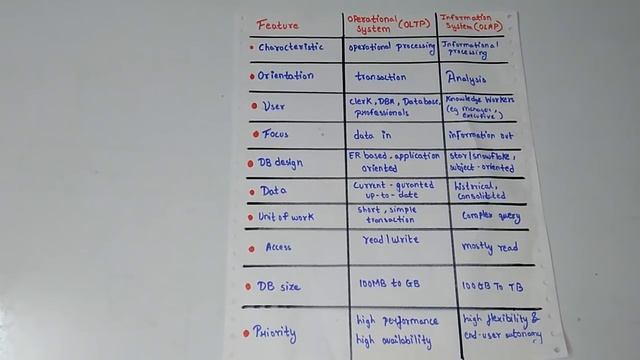 Feature
Operational System (OLTP)
Information System (OLAP)
Characteristic
operational processing
Informational processing
Orientation
transaction
Analysis
User
clerk, DBA, Database, professionals
Knowledge workers (eg manager, executive)
Focus
data in
information out
DB design
ER based, application oriented
star/snowflake, subject-oriented
Data
Current-guronted up-to-date
Historical, consolidated
Unit of work
short, simple transaction
Complex query
Access
read/write
mostly read
DB size
100MB to GB
100GB To TB
Priority
high performance
high availability
high flexibility &
end-user autonomy